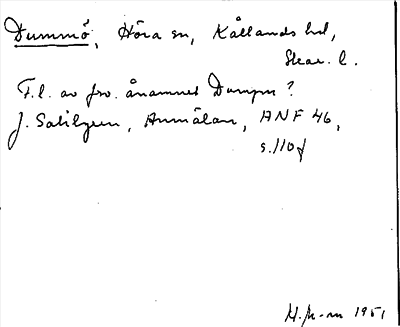 Dummö, Höra sn, Kållands hd,
Skar. l.
F.l. av fsv. ånamnet Dumpn?
J. Sahlgren, Anmälan, ANF 46,
s. 110f
H. M-m 1951